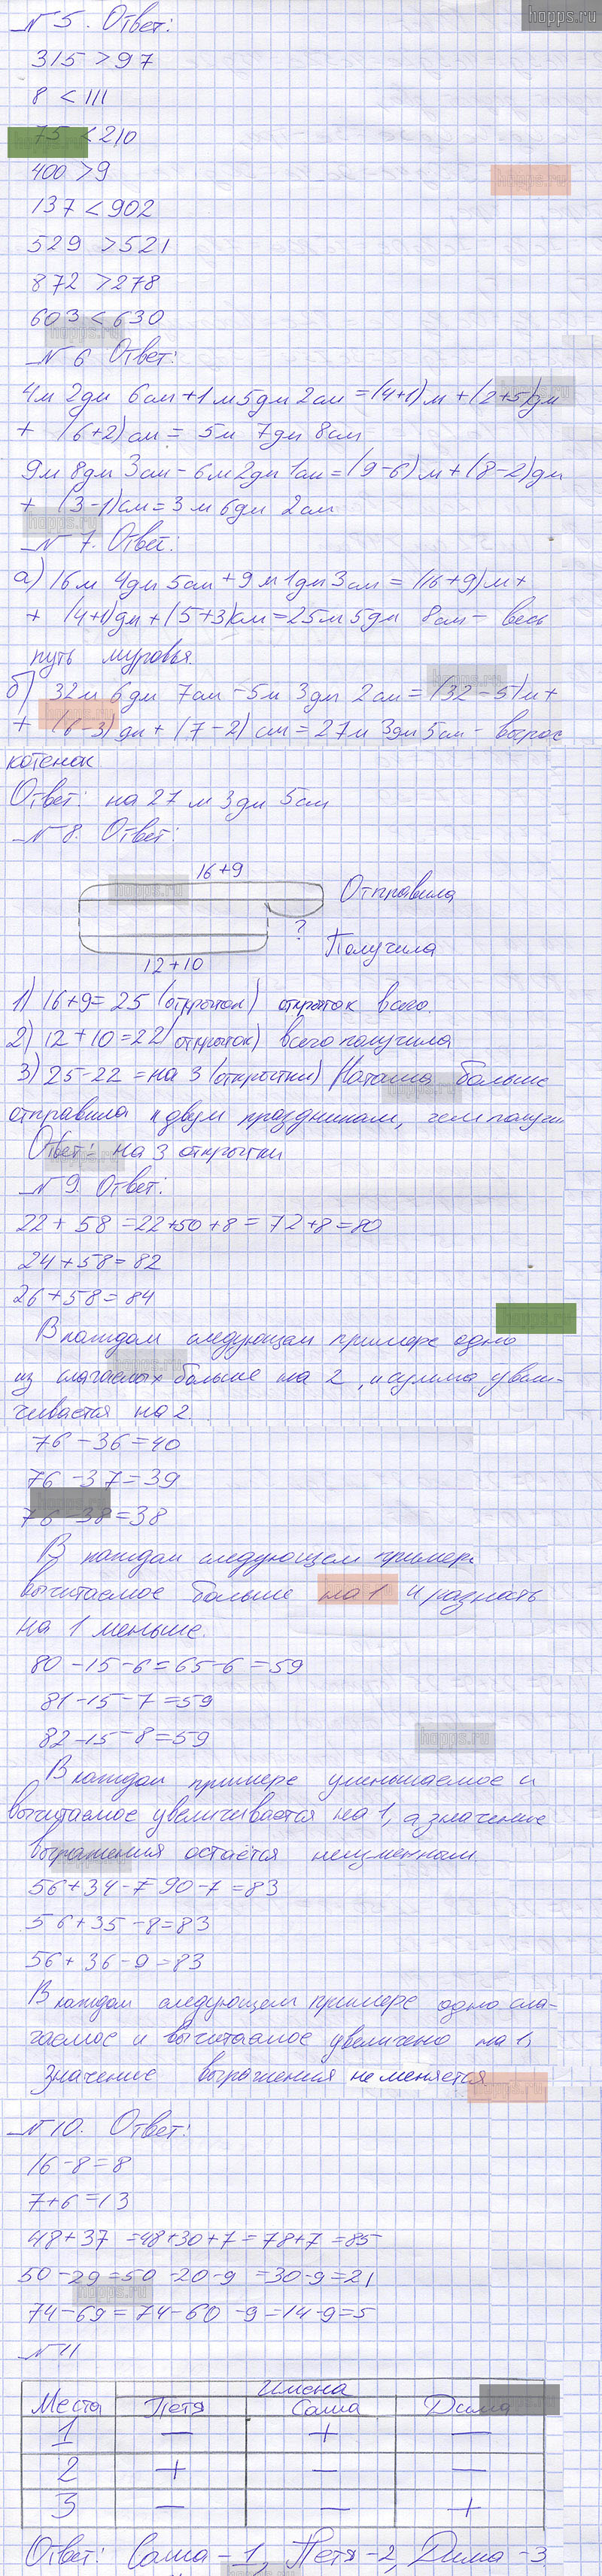 hopps.ru
№ 5. Ответ:
315 > 97
8 < 111
75 < 210
400 > 9
137 < 902
529 > 521
872 > 278
603 < 630
№ 6 Ответ:
4м 2дм 6см + 1м 5дм 2см = (4+1)м + (2+5)дм
+ (6+2)см = 5м 7дм 8см
9м 8дм 3см - 6м 2дм 1см = (9-6)м + (8-2)дм
+ (3-1)см = 3м 6дм 2см
№ 7. Ответ:
а) 16м 4дм 5см + 9м 1дм 3см = (16+9)м +
+ (4+1)дм + (5+3)км = 25м 5дм 8см - весь
путь муровья.
б) 32м 6дм 7см - 5м 3дм 2см = (32-5)м +
+ (6-3)дм + (7-2)см = 27м 3дм 5см - вырос
котенок
Ответ: на 27 м 3дм 5см
№ 8. Ответ:
16+9
Отправила
?
Получила
12+10
1) 16+9=25 (открыток) открыток всего.
2) 12+10=22 (открыток) всего получила
3) 25-22 = на 3 (открытки) Наташа больше
отправила к двум праздникам, чем получи
Ответ: на 3 открытки
№ 9. Ответ:
22 + 58 = 22+50+8 = 72+8=80
24+58=82
26+58=84
В каждом следующем примере одно
из слагаемых больше на 2, и сумма увели-
чивается на 2.
76-36=40
76-37=39
76-38=38
В каждом следующем примере
вычитаемое больше на 1 и разность
на 1 меньше.
80-15-6=65-6=59
81-15-7=59
82-15-8=59
В каждом примере уменьшаемое и
вычитаемое увеличивается на 1, а значение
выражения остаётся неизменным
56+34-7=90-7=83
56+35-8=83
56+36-9=83
В каждом следующем примере одно сла-
гаемое и вычитаемое увеличено на 1,
значение выражения не меняется
№ 10. Ответ:
16-8=8
7+6=13
48+37 =48+30+7=78+7=85
50-29=50-20-9 =30-9=21
74-69=74-60-9=14-9=5
№ 11
Имена
Места Петя Саша Дима
1 - + -
2 + - -
3 - - +
Ответ: Саша-1, Петя-2, Дима-3